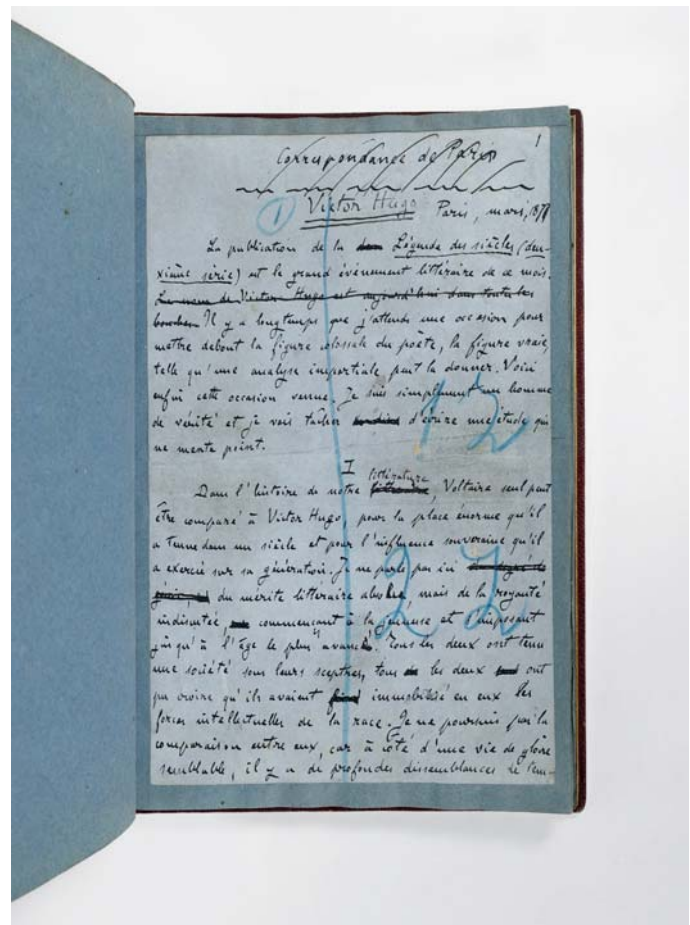 1
Correspondance de Paris
① Victor Hugo Paris, mars, 1877
La publication de la Légende des siècles (deu-
xième série) est le grand événement littéraire de ce mois.
Le nom de Victor Hugo est aujourd'hui dans toutes les
bouches Il y a longtemps que j'attends une occasion pour
mettre debout la figure colossale du poète, la figure vraie,
telle qu'une analyse impartiale peut la donner. Voici
enfin cette occasion venue. Je suis simplement un homme
de vérité et je vais tâcher d'écrire une étude qui
ne mente point.
12
I
littérature
Dans l'histoire de notre Voltaire seul peut
être comparé à Victor Hugo, pour la place énorme qu'il
a tenue dans un siècle et pour l'influence souveraine qu'il
a exercée sur sa génération. Je ne parle pas ici
du mérite littéraire absolu mais de la royauté
22
indiscutée, commençant à la jeunesse et s'imposant
jusqu'à l'âge le plus avancé. Tous les deux ont tenu
une société sous leurs sceptres, tous les deux ont
pu croire qu'ils avaient immobilisé en eux les
forces intellectuelles de la race. Je ne poursuis pas la
comparaison entre eux, car à côté d'une vie de gloire
semblable, il y a de profondes dissemblances de tem-